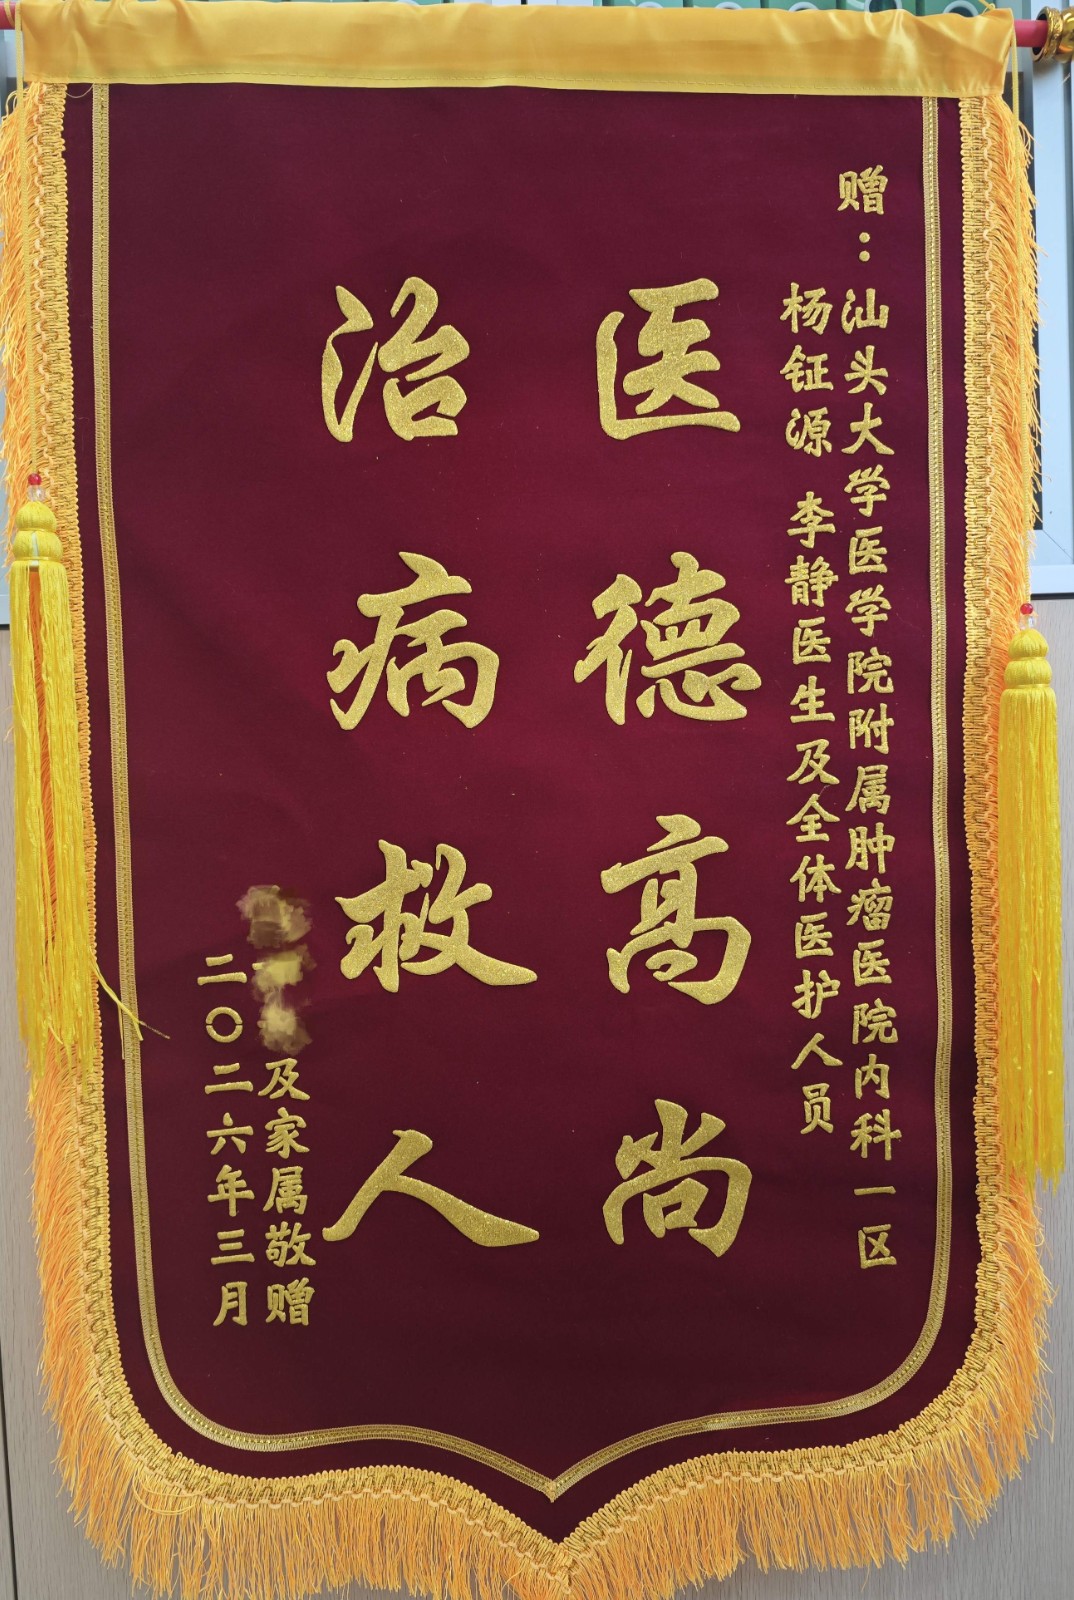 赠：汕头大学医学院附属肿瘤医院内科一区
杨钲源 李静医生及全体医护人员
医德高尚
治病救人
及家属敬赠
二〇二六年三月